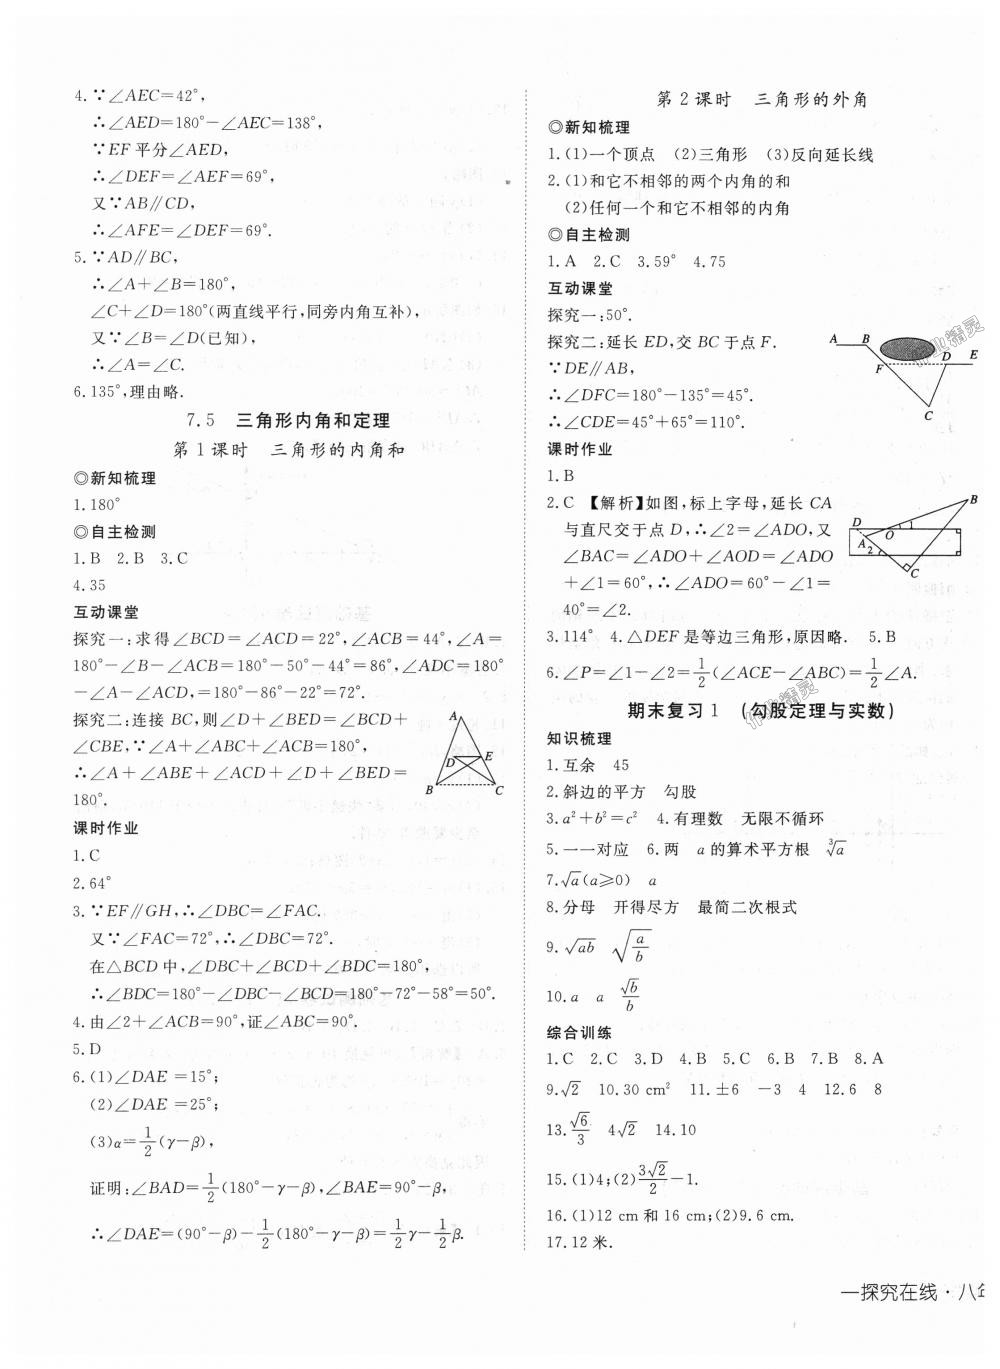 4.∵∠AEC=42°,
∴∠AED=180°-∠AEC=138°,
∵EF平分∠AED,
∴∠DEF=∠AEF=69°,
又∵AB∥CD,
∴∠AFE=∠DEF=69°.
5.∵AD∥BC,
∴∠A+∠B=180°,
∠C+∠D=180°(两直线平行,同旁内角互补),
又∵∠B=∠D(已知),
∴∠A=∠C.
6.135°,理由略.
7.5 三角形内角和定理
第1课时 三角形的内角和
◎新知梳理
1.180°
◎自主检测
1.B 2.B 3.C
4.35
互动课堂
探究一:求得∠BCD=∠ACD=22°,∠ACB=44°,∠A=
180°-∠B-∠ACB=180°-50°-44°=86°,∠ADC=180°
-∠A-∠ACD,=180°-86°-22°=72°.
探究二:连接BC,则∠D+∠BED=∠BCD+
∠CBE,∵∠A+∠ABC+∠ACB=180°,
∴∠A+∠ABE+∠ACD+∠D+∠BED=
180°.
A
D E
B C
课时作业
1.C
2.64°
3.∵EF∥GH,∴∠DBC=∠FAC.
又∵∠FAC=72°,∴∠DBC=72°.
在△BCD中,∠DBC+∠BCD+∠BDC=180°,
∴∠BDC=180°-∠DBC-∠BCD=180°-72°-58°=50°.
4.由∠2+∠ACB=90°,证∠ABC=90°.
5.D
6.(1)∠DAE=15°;
(2)∠DAE=25°;
(3)α=1/2(γ-β),
证明:∠BAD=1/2(180°-γ-β),∠BAE=90°-β,
∴∠DAE=(90°-β)-1/2(180°-γ-β)=1/2γ-1/2β.
第2课时 三角形的外角
◎新知梳理
1.(1)一个顶点 (2)三角形 (3)反向延长线
2.(1)和它不相邻的两个内角的和
(2)任何一个和它不相邻的内角
◎自主检测
1.A 2.C 3.59° 4.75
互动课堂
探究一:50°.
探究二:延长ED,交BC于点F.
∵DE∥AB,
∴∠DFC=180°-135°=45°.
∴∠CDE=45°+65°=110°.
A B
F D E
C
作业精灵
课时作业
1.B
2.C 【解析】如图,标上字母,延长CA
与直尺交于点D,∴∠2=∠ADO,又
∠BAC=∠ADO+∠AOD=∠ADO
+∠1=60°,∴∠ADO=60°-∠1=
40°=∠2.
B
D O 1
A 2
C
3.114° 4.△DEF是等边三角形,原因略. 5.B
6.∠P=∠1-∠2=1/2(∠ACE-∠ABC)=1/2∠A.
作业精灵
期末复习1 (勾股定理与实数)
知识梳理
1.互余 45
2.斜边的平方 勾股
3.a²+b²=c² 4.有理数 无限不循环
5.一一对应 6.两 a的算术平方根 ∛a
7.√a(a⩾0) a
8.分母 开得尽方 最简二次根式
9.√ab √(a/b)
10.a a √b/b
综合训练
1.C 2.C 3.D 4.B 5.C 6.B 7.B 8.A
9.√2 10.30 cm² 11.±6 -3 4 12.6 8
13.√6/3 4√2 14.10
15.(1)4;(2)3√2/2-1.
16.(1)12 cm和16 cm;(2)9.6 cm.
17.12米.
一探究在线·八年